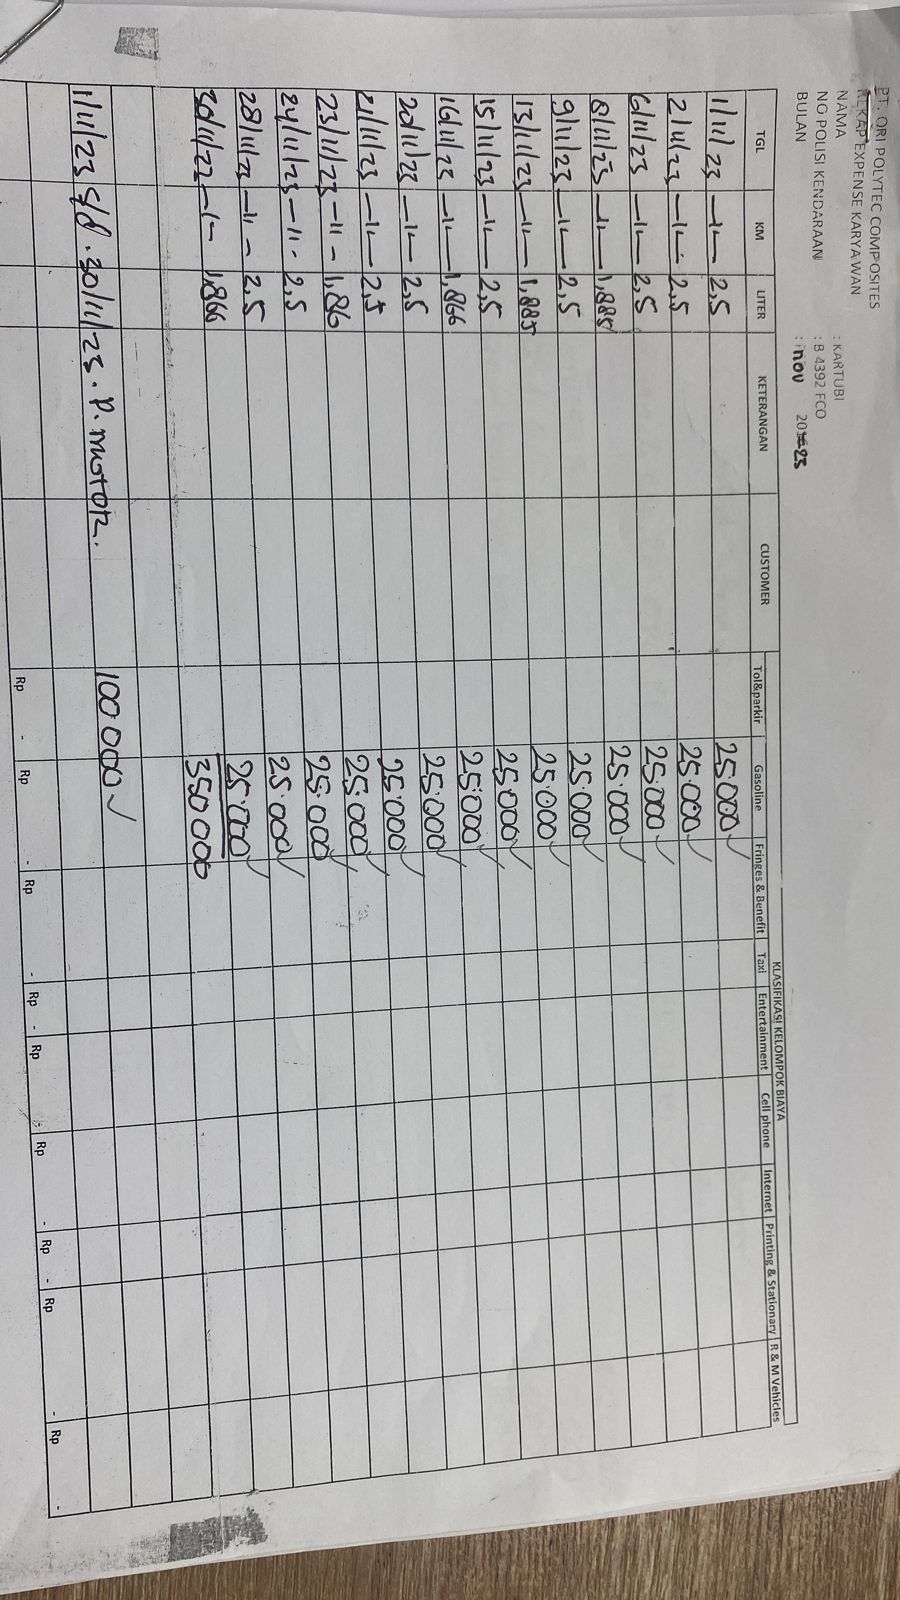 PT. ORI POLYTEC COMPOSITES
REKAP EXPENSE KARYAWAN
NAMA : KARTUBI
NO POLISI KENDARAAN : B 4392 FCO
BULAN : nov 23
KLASIFIKASI KELOMPOK BIAYA
TGL KM LITER KETERANGAN CUSTOMER Tol&parkir Gasoline Fringes & Benefit Taxi Entertainment Cell phone Internet Printing & Stationary R & M Vehicles
1/11/23 -"- 2,5 25.000 ✓
2/11/23 -"- 2,5 25.000 ✓
6/11/23 -"- 2,5 25.000 ✓
8/11/23 -"- 1,885 25.000 ✓
9/11/23 -"- 2,5 25.000 ✓
13/11/23 -"- 1,885 25.000 ✓
15/11/23 -"- 2,5 25.000 ✓
16/11/23 -"- 1,866 25.000 ✓
20/11/23 -"- 2,5 25.000 ✓
21/11/23 -"- 2,5 25.000 ✓
23/11/23 -"- 25.000 ✓
24/11/23 -"- 2,5 25.000 ✓
28/11/23 -"- 2,5 25.000 ✓
30/11/23 -"- 1,866 25.000 ✓
350 000
1/11/23 s/d. 30/11/23. P. motor. 100 000 ✓
Rp - Rp - Rp - Rp - Rp - Rp - Rp - Rp - Rp -